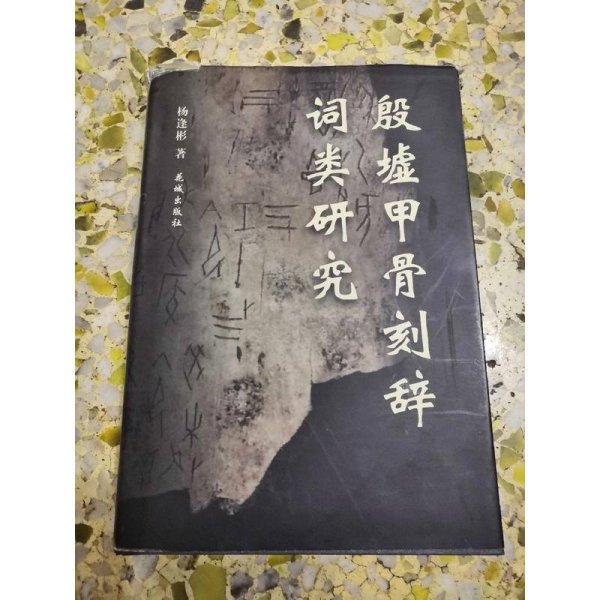 殷墟甲骨刻辞
词类研究
杨逢彬 著
花城出版社